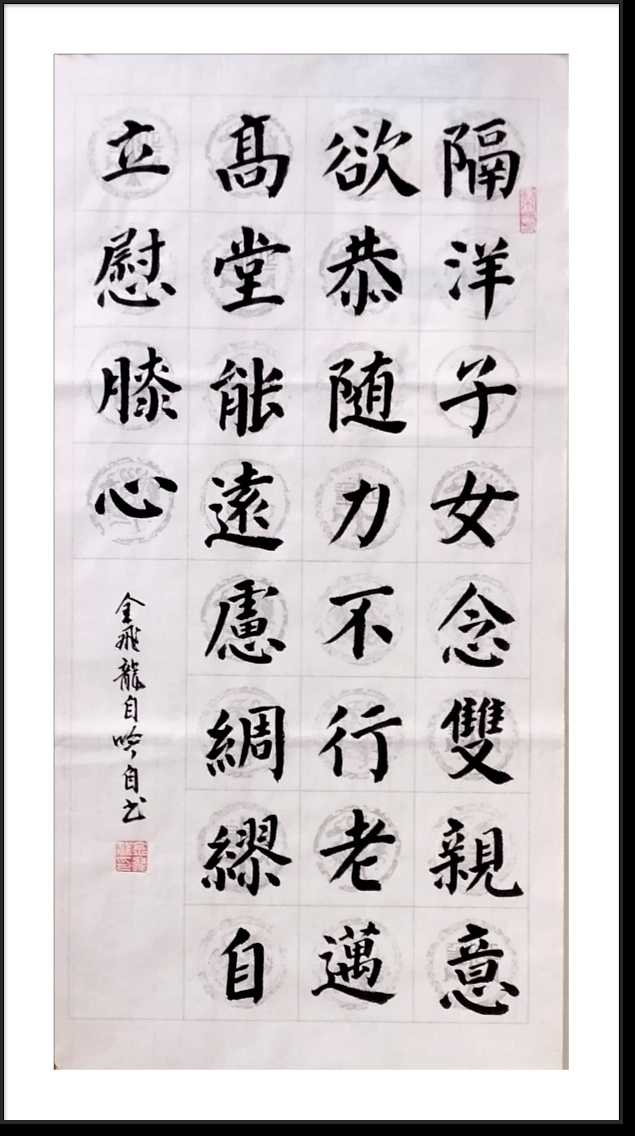 隔洋子女念雙親意
欲恭随力不行老邁
髙堂能遠慮綢繆自
立慰膝心
金飛龍自吟自书